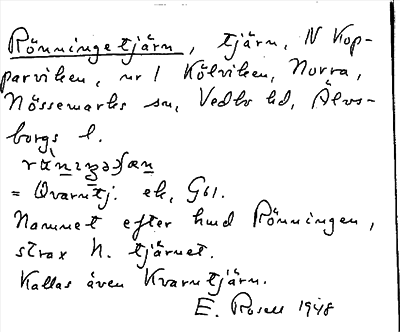 Rönningetjärn, tjärn, N Kop-
parviken, nr 1 Kölviken, Norra,
Nössemarks sn, Vedbo hd, Älvs-
borgs l.
= Qvarntj. ek, G61.
Namnet efter hmd Rönningen,
strax N. tjärnet.
Kallas även Kvarntjärn.
E. Rosell 1948